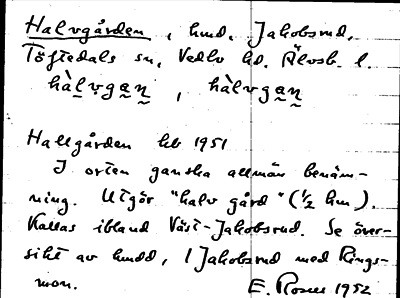 Halvgården, hmd. Jakobsrud,
Töftedals sn, Vedbo hd. Älvsb. l.
hàlvgaṇ, hàlvgaṇ
Hallgården hb 1951
I orten ganska allmän benäm-
ning. Utgör "halv gård" (½ hm).
Kallas ibland Väst-Jakobsrud. Se över-
sikt av hmdd, 1 Jakobsrud med Rings-
mon. E. Rosell 1952